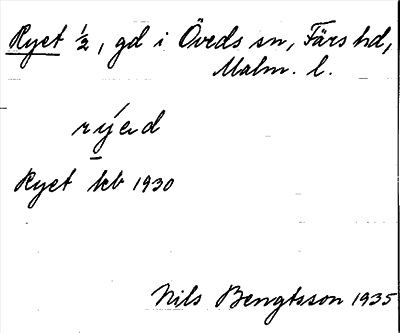 Ryet ½, gd i Öveds sn, Färs hd,
Malm. l.
rýəd
Ryet kb 1930
Nils Bengtsson 1935